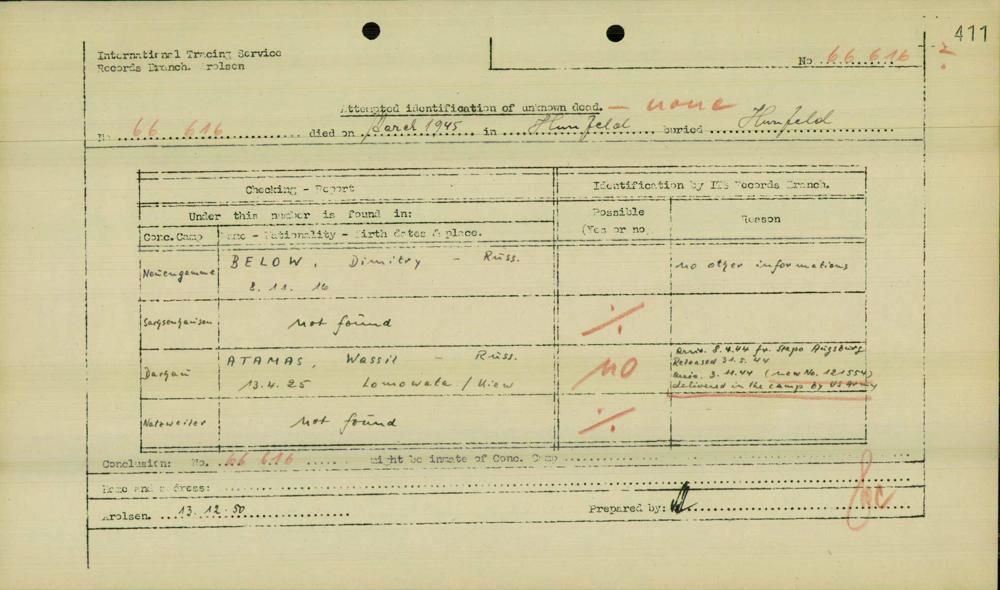 411
International Tracing Service
Records Branch. Arolsen
No 66 616 ?
Attempted identification of unknown dead. - none
No 66 616 died on March 1945 in Hünfeld buried Hünfeld
Checking - Report
Identification by ITS Records Branch.
Under this number is found in:
Possible
(Yes or no)
Reason
Conc. Camp
Name - Nationality - Birth dates & place.
Neuengamme
BELOW, Dimitry - Russ.
8. 11. 16
no other informations
Sachsenhausen
not found
./.
Dachau
ATAMAS, Wassil - Russ.
13.4.25 Lomowata / Kiew
NO
arriv. 8.4.44 fr. Stapo Augsburg
Released 31.5.44
arriv. 3.11.44 (new No. 121554)
delivered in the camp by US Army
Natzweiler
not found
./.
Conclusion: No. 66 616 might be inmate of Conc. Camp
Name and address:
Arolsen. 13.12.50
Prepared by: